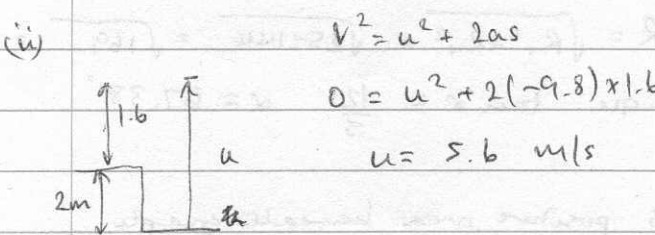 (ii)
V² = u² + 2as
0 = u² + 2(-9.8) × 1.6
u = 5.6 m/s
1.6
u
2m